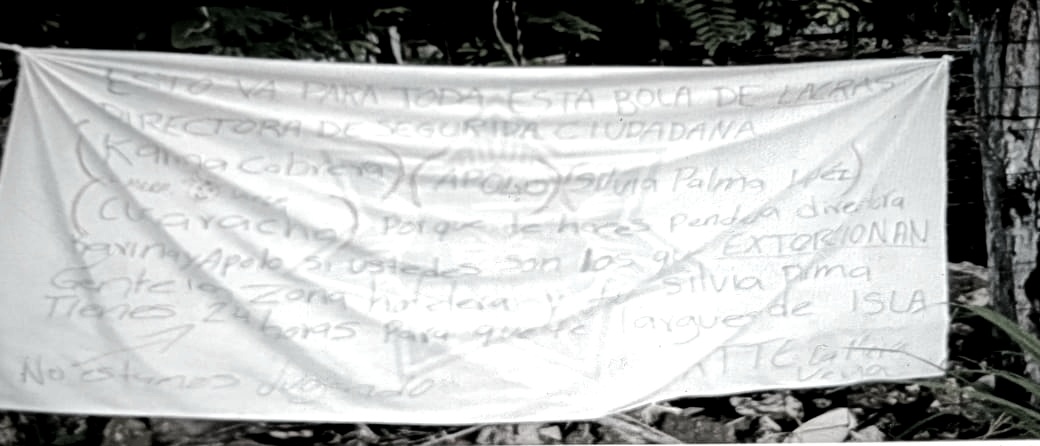 ESTO VA PARA TODA ESTA BOLA DE LACRAS
DIRECTORA DE SEGURIDA CIUDADANA
(Karina Cabrera) (APOLO) (Silvia Palma
(Cucaracha) Porque te haces pendeja directora
Karina y Apolo si ustedes son los q EXTORCIONAN
Gente la Zona hotelera y tu Silvia
Tienes 24 horas Para que te largue de ISLA
No estamos Jugando ATTE